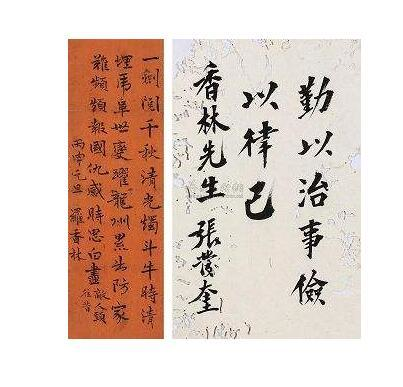 一劍閟千秋清光燭斗牛時清
埋虎阜世變躍龍洲累出防家
難頻頻報國仇感時思白晝
敵人頭
丙申元旦 羅香林
勤以治事儉
以律己
香林先生 張發奎